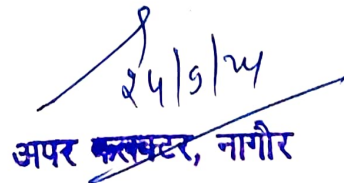 २५/९/२५
अपर कलक्टर, नागौर